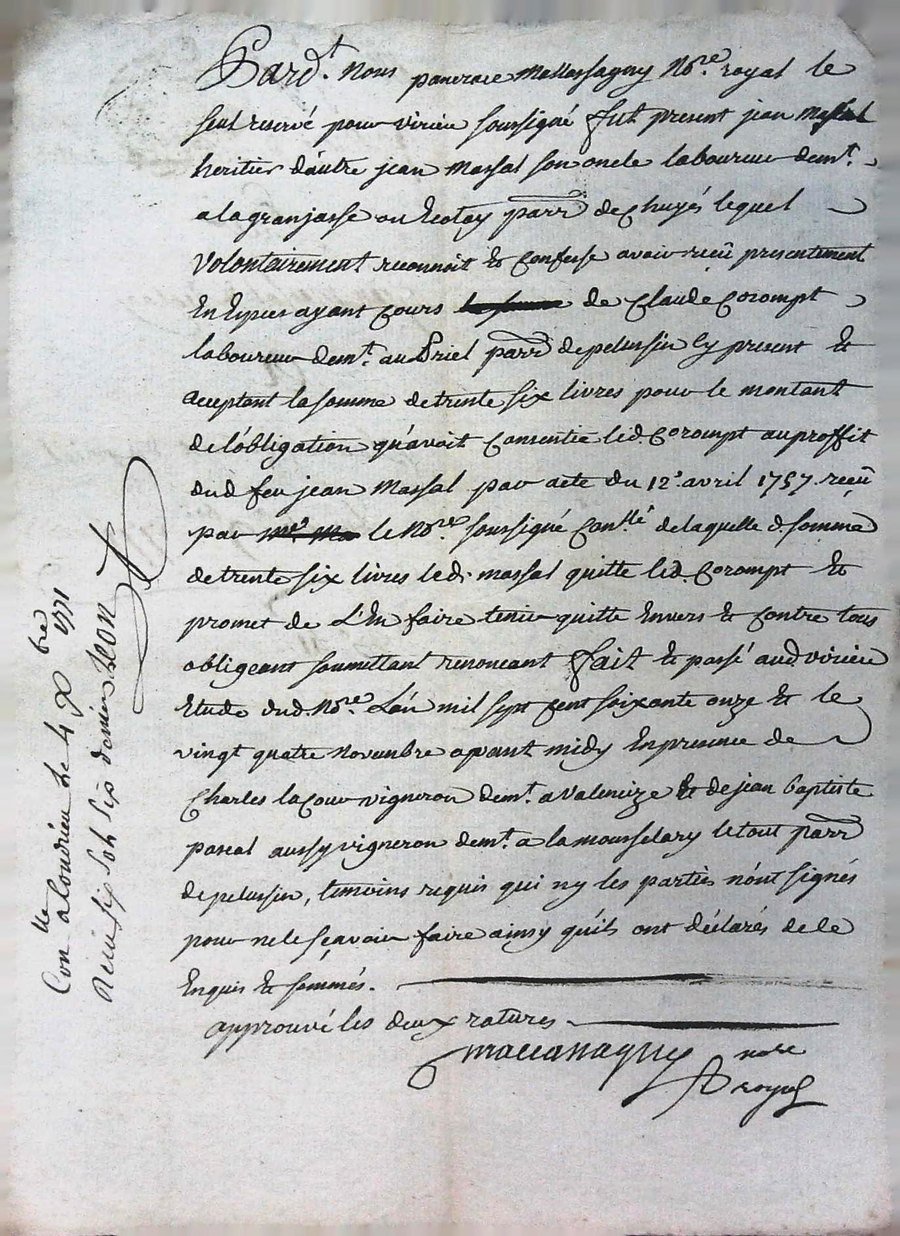 Pard.t Nous pancrace Mallassagny No.re royal le
seul reservé pour virieu soussigné fut present jean Massal
heritier d'autre jean Massal son oncle laboureur dem.t
a la granjasse ou Ecotay parr de Chuyés lequel
volontairement reconnoit Et Confesse avoir reçu presentement
En Espices ayant Cours la somme de Claude Corompt
laboureur dem.t au Priel parr de pelussin Cy present Et
acceptant la somme de trente six livres pour le montant
de l'obligation qu'avoit Consentie led. Corompt au proffit
dud feu jean Massal par acte du 12.e avril 1757. reçu
par le No.re soussigné Con.llé de laquelle d. somme
de trente six livres led. massal quitte led Corompt Et
promet de L'En faire tenir quitte Envers Et Contre tous
obligeant soumettant renoncant fait Et passé aud. virieu
Etude dud. No.re L'an mil sept Cent soixante onze Et le
vingt quatre Novembre avant midy En presence de
Charles la Cour vigneron dem.t a Valencize Et de jean baptiste
pascal aussy vigneron dem.t a la mousselary le tout parr
de pelussin, temoins requis qui ny les parties n'ont signés
pour ne le sçavoir faire ainsy qu'ils ont déclarés de ce
Enquis Et sommés.
approuvé les deux ratures
maccanagny no.re
royal
Con.lle a Condrieu le 4 Xbre 1771
Reçu six sols six deniers